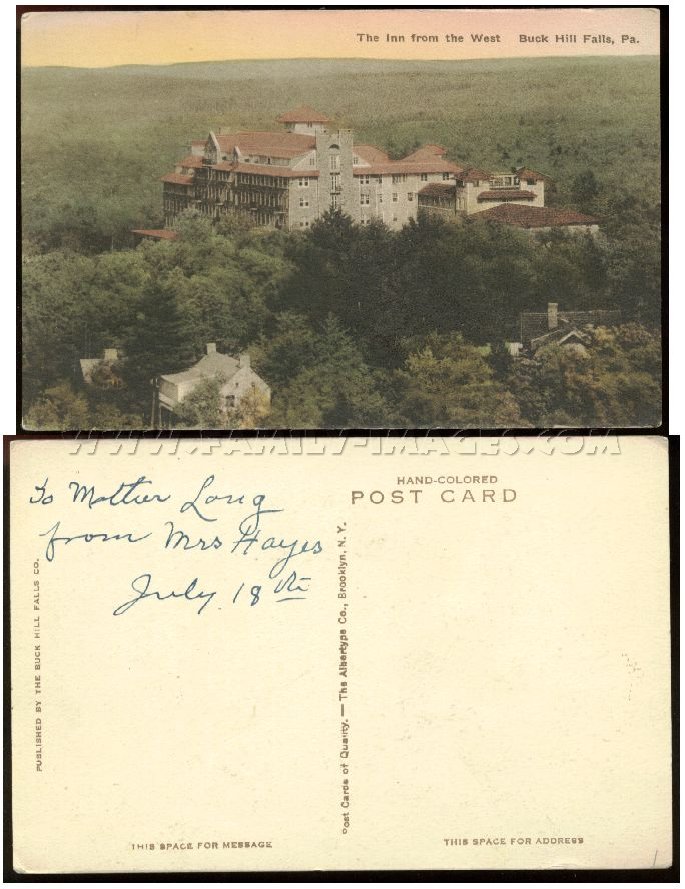 The Inn from the West   Buck Hill Falls, Pa.
WWW.FAMILY-IMAGES.COM
To Mother Long
from Mrs Hayes
July 18th
PUBLISHED BY THE BUCK HILL FALLS CO.
THIS SPACE FOR MESSAGE
Post Cards of Quality. — The Albertype Co., Brooklyn, N. Y.
HAND-COLORED
POST CARD
THIS SPACE FOR ADDRESS